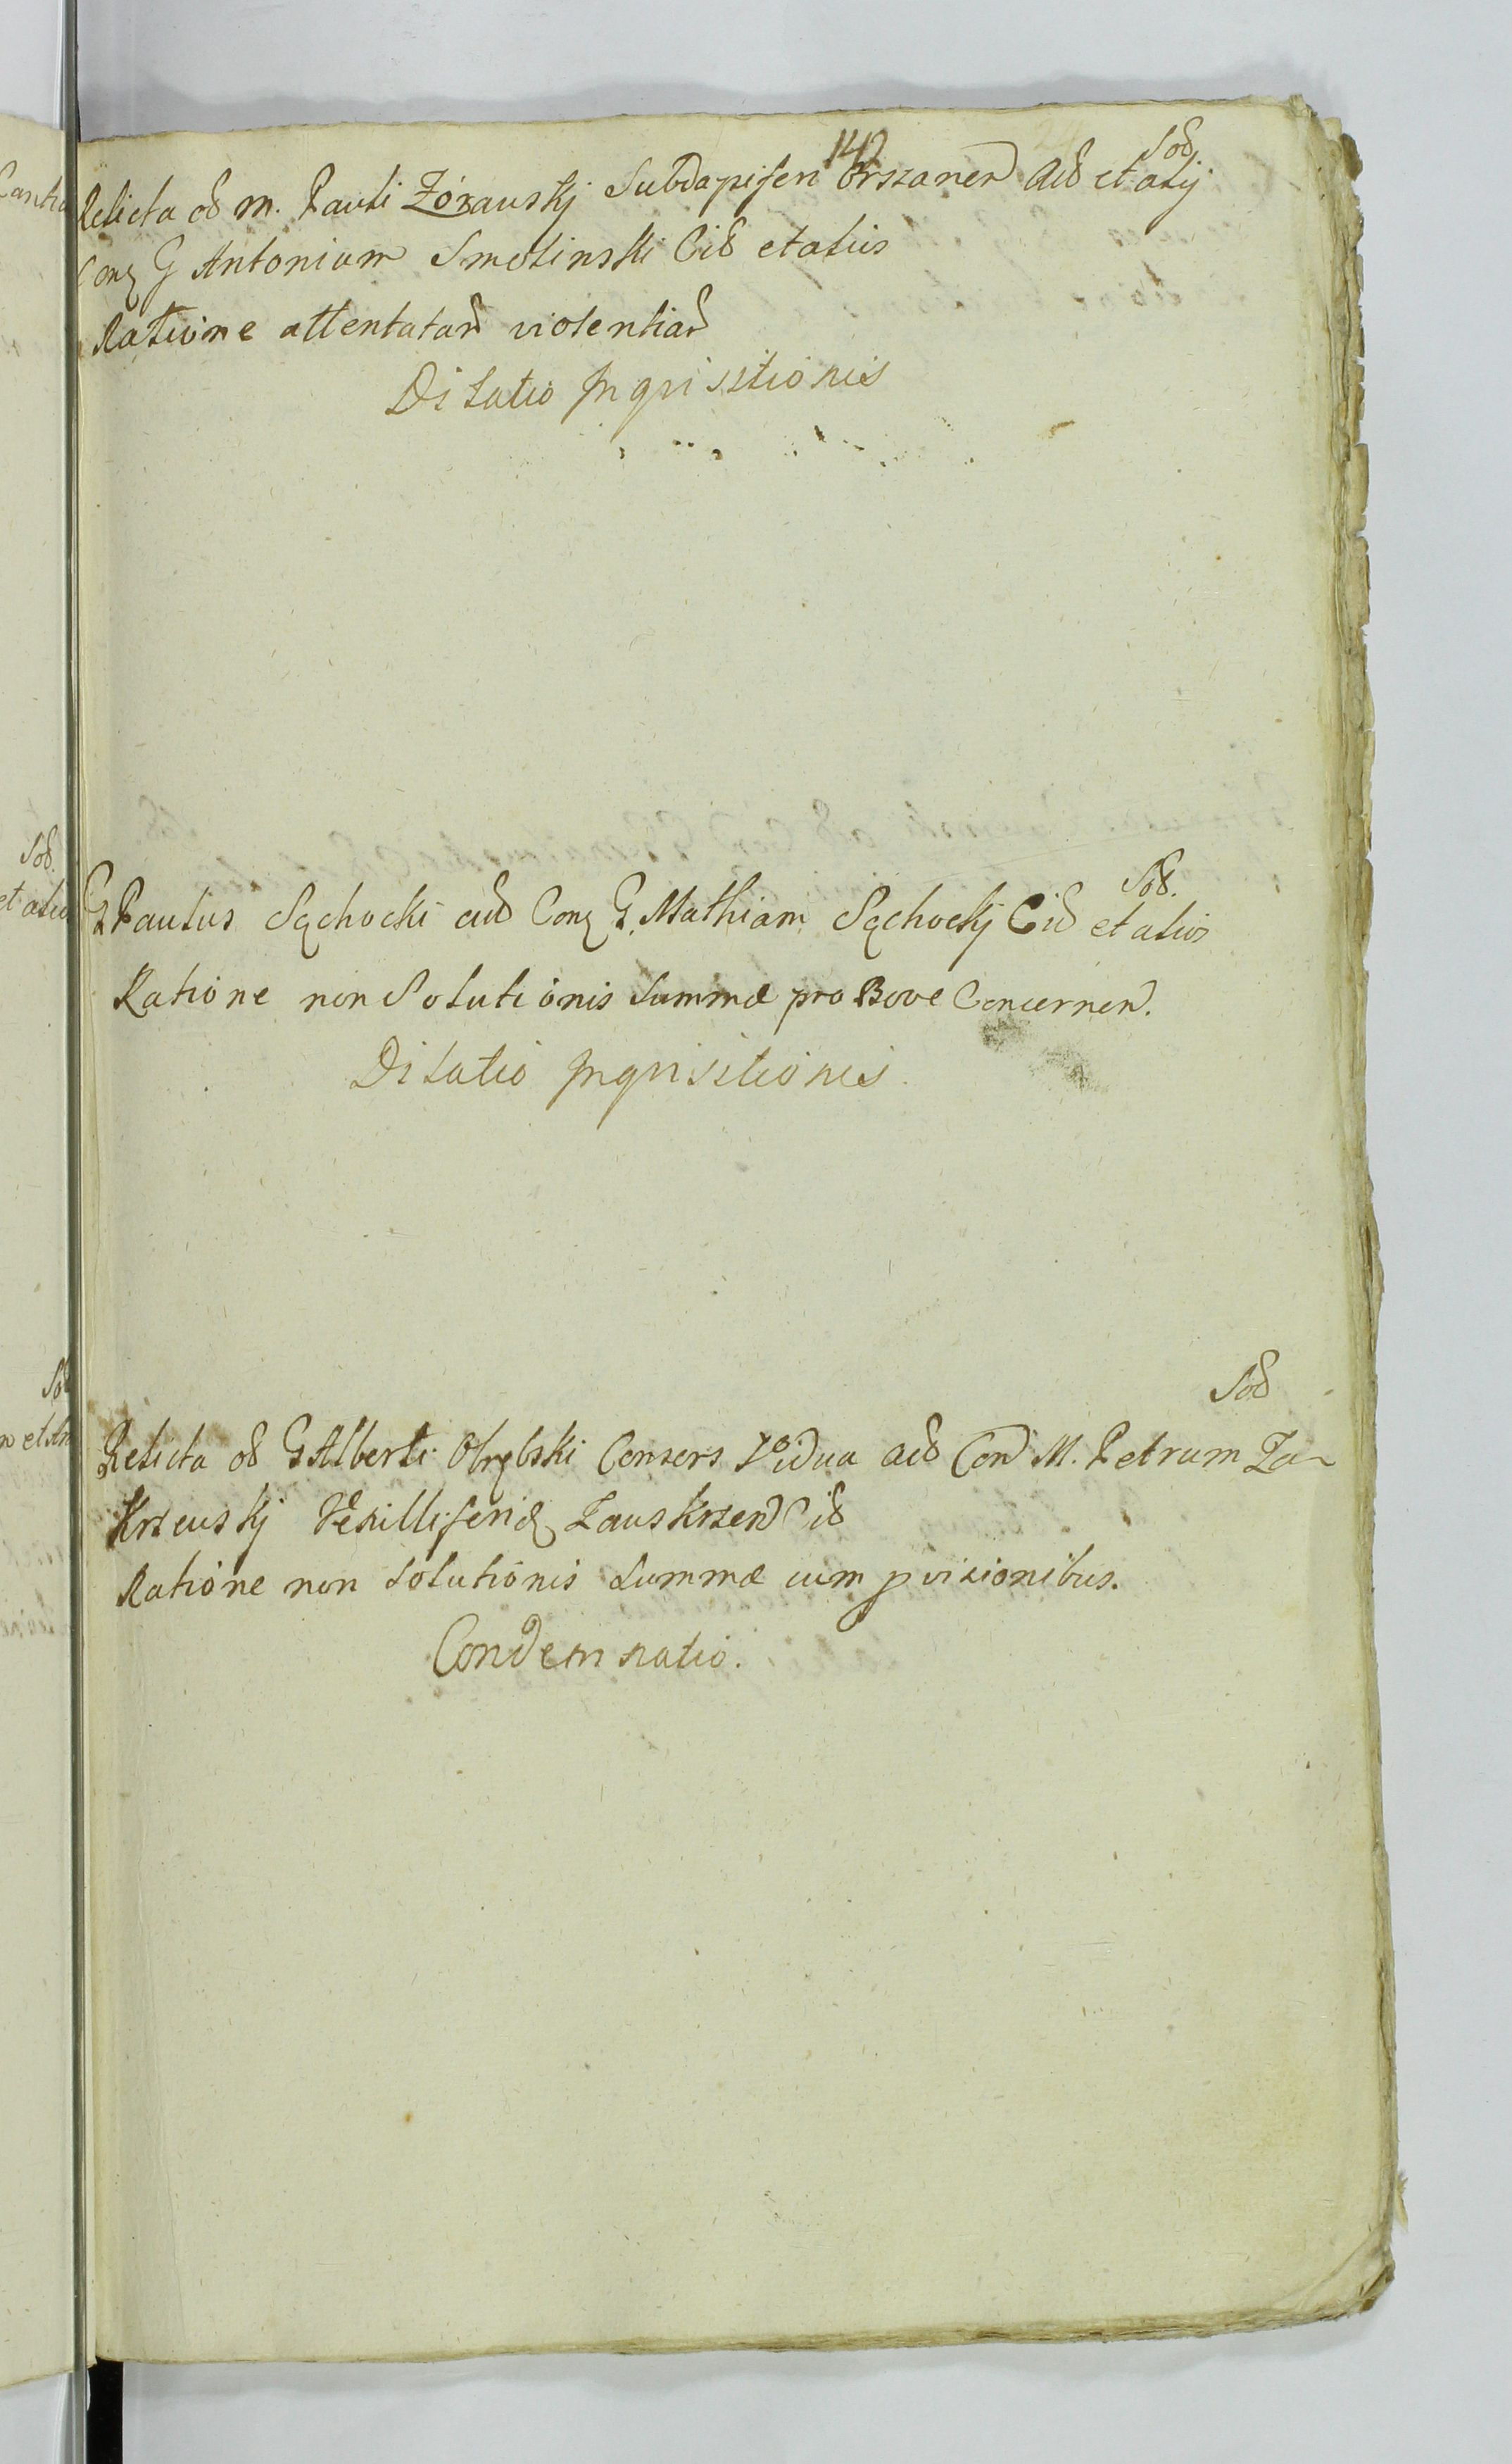 142
Sod
Relicta od M. Pauli Zórauskj Subdapiferi Orszanen Acd et alij
Con G Antonium Smolinski Cid et alius
Ratione attentatar violentiar
Dilatio Inqvisitionis
Sod.
G Paulus Sąchocki acd Con G. Mathiam Sąchockj Cid et alios
Ratione non Solutionis Summæ pro Bove Concernen.
Dilatio Inqvisitionis
Sod
Relicta od G Alberti Obrębski Consors Vidua acd Con M. Petrum Za-
Krzeuskj Vexilliferid Zauskrzen Cid
Ratione non Solutionis Summæ cum pvisionibus.
Condemnatio.